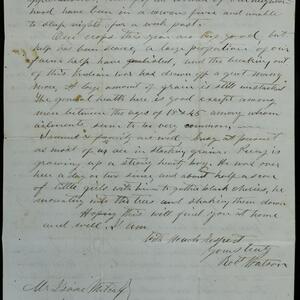 head have been in a severe fever and unable
to sleep nights for a week past.
Our crops this year are very good, but
help has been scarce, a large proportion of our
farm help have enlisted, and the breaking out
of this Indian war has drawn off a great many
more. A large amount of grain is still unstacked
The general health here is good except among
men between the ages of 18 & 45 among whom
seems to be very common
family are well. busy at present
as most of us are in stacking grain. Percy is
growing up a strong hearty boy. He was over
here a day or two since, and about half a score
of little girls with him to gather black cherries, he
mounting into the trees and shaking them down
Hoping this will find you at home
and well, I am
With Much Respect
Yours truly
Robt Watson
Mr Isaac